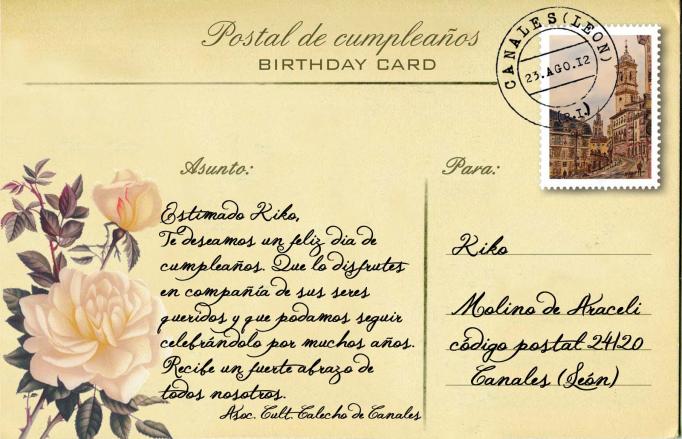 Postal de cumpleaños
BIRTHDAY CARD
CANALES (LEON)
23.AGO.12
(R.I)
Asunto:
Estimado Kiko,
Te deseamos un feliz dia de
cumpleaños. Que lo disfrutes
en compañía de sus seres
queridos y que podamos seguir
celebrándolo por muchos años.
Recibe un fuerte abrazo de
todos nosotros.
Asoc. Cult. Calecho de Canales
Para:
Kiko
Molino de Araceli
código postal 24120
Canales (León)